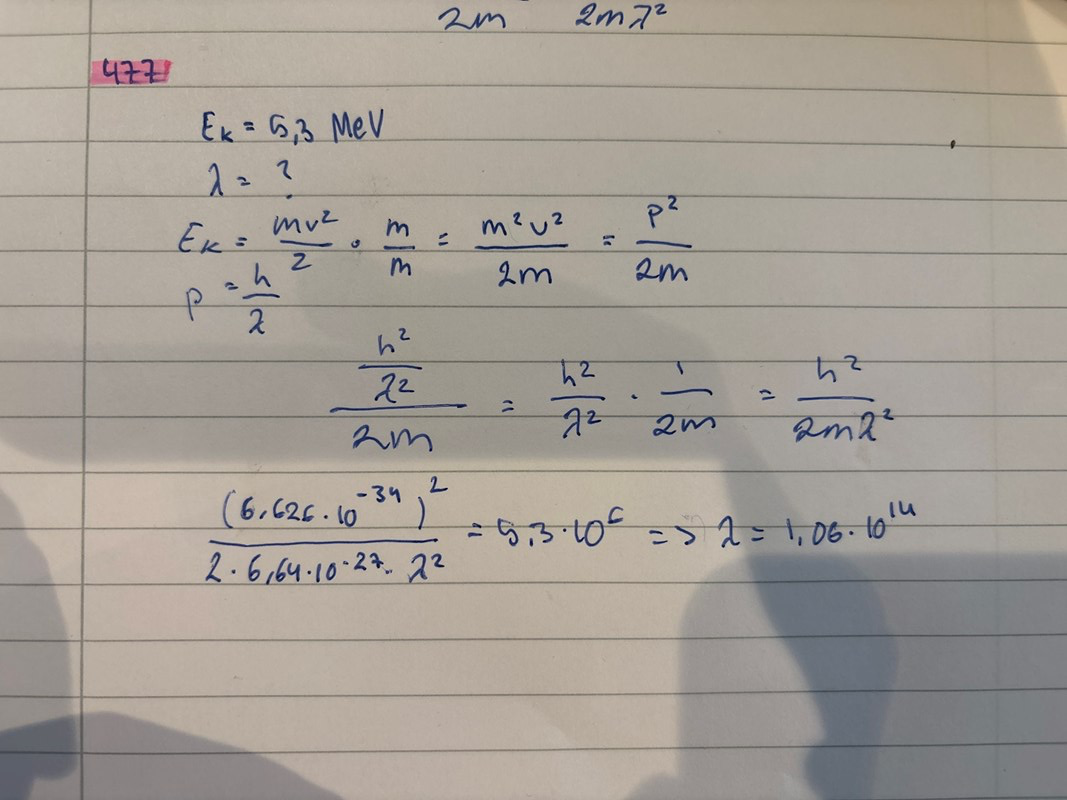 2m 2mλ²
477
Eₖ = 5,3 MeV
λ = ?
Eₖ = mv²/2 · m/m = m²v²/2m = p²/2m
p = h/λ
(h²/λ²)/2m = h²/λ² · 1/2m = h²/2mλ²
(6,626·10⁻³⁴)²/(2·6,64·10⁻²⁷·λ²) = 5,3·10⁶ => λ = 1,06·10¹⁴